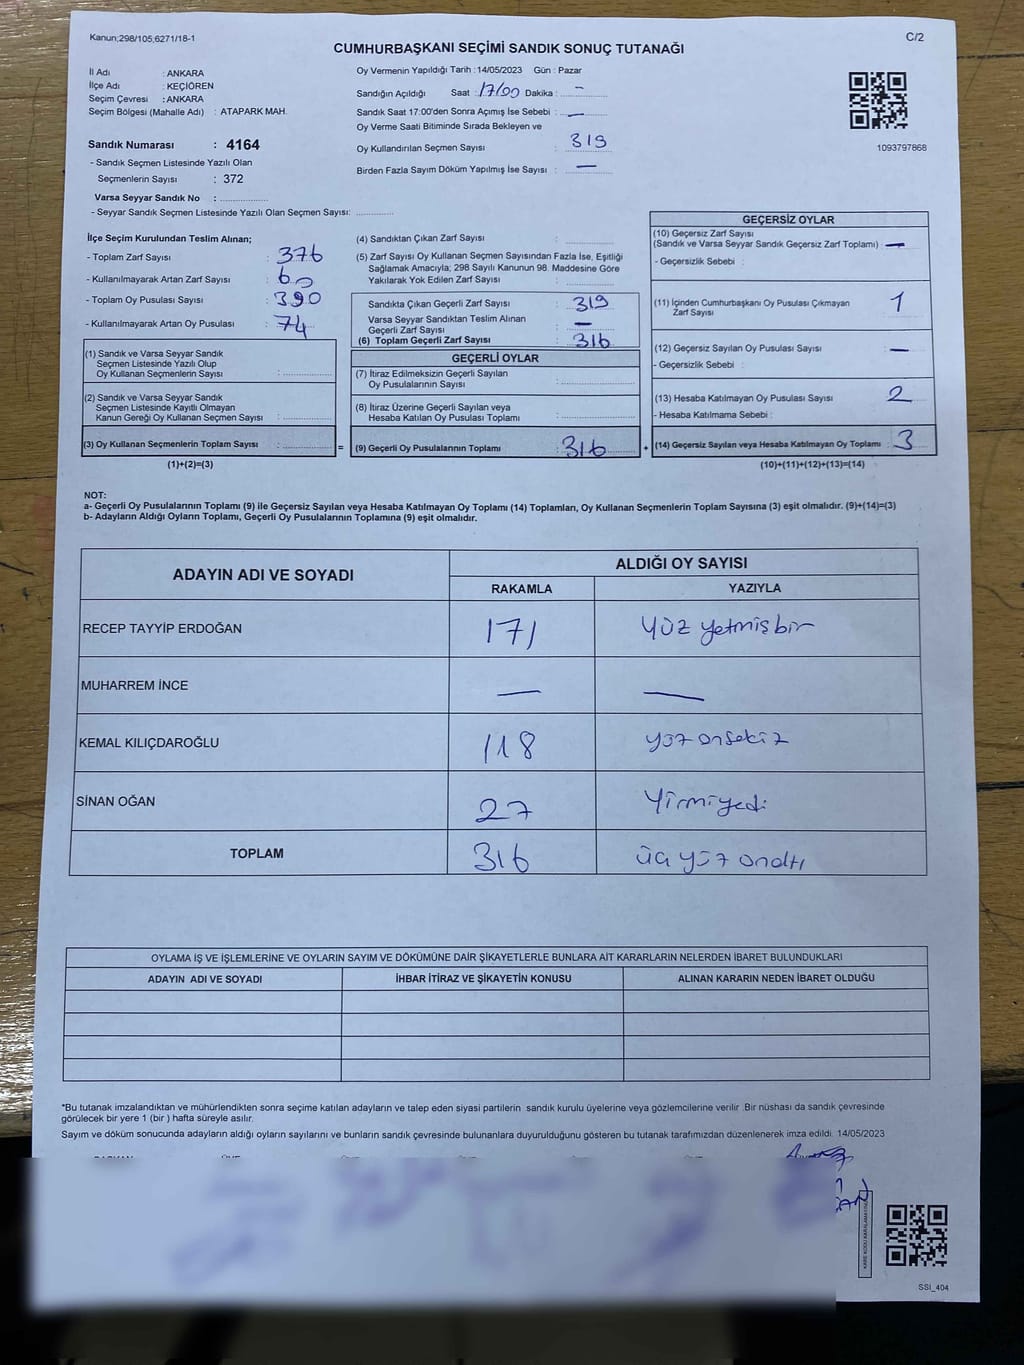 Kanun;298/105;6271/18-1
C/2
CUMHURBAŞKANI SEÇİMİ SANDIK SONUÇ TUTANAĞI
İl Adı : ANKARA
İlçe Adı : KEÇİÖREN
Seçim Çevresi : ANKARA
Seçim Bölgesi (Mahalle Adı) : ATAPARK MAH.
Sandık Numarası : 4164
- Sandık Seçmen Listesinde Yazılı Olan
Seçmenlerin Sayısı : 372
Varsa Seyyar Sandık No :
- Seyyar Sandık Seçmen Listesinde Yazılı Olan Seçmen Sayısı:
Oy Vermenin Yapıldığı Tarih : 14/05/2023 Gün : Pazar
Sandığın Açıldığı Saat : 17/00 Dakika : -
Sandık Saat 17:00'den Sonra Açımış İse Sebebi : -
Oy Verme Saati Bitiminde Sırada Bekleyen ve
Oy Kullandırılan Seçmen Sayısı : 319
Birden Fazla Sayım Döküm Yapılmış İse Sayısı : -
1093797868
İlçe Seçim Kurulundan Teslim Alınan;
- Toplam Zarf Sayısı : 376
- Kullanılmayarak Artan Zarf Sayısı :
- Toplam Oy Pusulası Sayısı : 390
- Kullanılmayarak Artan Oy Pusulası : 74
(1) Sandık ve Varsa Seyyar Sandık
Seçmen Listesinde Yazılı Olup
Oy Kullanan Seçmenlerin Sayısı :
(2) Sandık ve Varsa Seyyar Sandık
Seçmen Listesinde Kayıtlı Olmayan
Kanun Gereği Oy Kullanan Seçmen Sayısı :
(3) Oy Kullanan Seçmenlerin Toplam Sayısı : =
(1)+(2)=(3)
(4) Sandıktan Çıkan Zarf Sayısı :
(5) Zarf Sayısı Oy Kullanan Seçmen Sayısından Fazla İse, Eşitliği
Sağlamak Amacıyla; 298 Sayılı Kanunun 98. Maddesine Göre
Yakılarak Yok Edilen Zarf Sayısı :
Sandıkta Çıkan Geçerli Zarf Sayısı : 319
Varsa Seyyar Sandıktan Teslim Alınan
Geçerli Zarf Sayısı : -
(6) Toplam Geçerli Zarf Sayısı : 316
GEÇERLİ OYLAR
(7) İtiraz Edilmeksizin Geçerli Sayılan
Oy Pusulalarının Sayısı :
(8) İtiraz Üzerine Geçerli Sayılan veya
Hesaba Katılan Oy Pusulaları Toplamı :
(9) Geçerli Oy Pusulalarının Toplamı : 316 +
GEÇERSİZ OYLAR
(10) Geçersiz Zarf Sayısı
(Sandık ve Varsa Seyyar Sandık Geçersiz Zarf Toplamı) : -
- Geçersizlik Sebebi :
(11) İçinden Cumhurbaşkanı Oy Pusulası Çıkmayan
Zarf Sayısı : 1
(12) Geçersiz Sayılan Oy Pusulası Sayısı : -
- Geçersizlik Sebebi :
(13) Hesaba Katılmayan Oy Pusulası Sayısı : 2
- Hesaba Katılmama Sebebi :
(14) Geçersiz Sayılan veya Hesaba Katılmayan Oy Toplamı : 3
(10)+(11)+(12)+(13)=(14)
NOT:
a- Geçerli Oy Pusulalarının Toplamı (9) ile Geçersiz Sayılan veya Hesaba Katılmayan Oy Toplamı (14) Toplamları, Oy Kullanan Seçmenlerin Toplam Sayısına (3) eşit olmalıdır. (9)+(14)=(3)
b- Adayların Aldığı Oyların Toplamı, Geçerli Oy Pusulalarının Toplamına (9) eşit olmalıdır.
ADAYIN ADI VE SOYADI
ALDIĞI OY SAYISI
RAKAMLA YAZIYLA
RECEP TAYYİP ERDOĞAN 171 yüz yetmişbir
MUHARREM İNCE - -
KEMAL KILIÇDAROĞLU 118 yüz onsekiz
SİNAN OĞAN 27 Yirmiyedi
TOPLAM 316 üç yüz onaltı
OYLAMA İŞ VE İŞLEMLERİNE VE OYLARIN SAYIM VE DÖKÜMÜNE DAİR ŞİKAYETLERLE BUNLARA AİT KARARLARIN NELERDEN İBARET BULUNDUKLARI
ADAYIN ADI VE SOYADI İHBAR İTİRAZ VE ŞİKAYETİN KONUSU ALINAN KARARIN NEDEN İBARET OLDUĞU
*Bu tutanak imzalandıktan ve mühürlendikten sonra seçime katılan adayların ve talep eden siyasi partilerin sandık kurulu üyelerine veya gözlemcilerine verilir .Bir nüshası da sandık çevresinde
görülecek bir yere 1 (bir ) hafta süreyle asılır.
Sayım ve döküm sonucunda adayların aldığı oyların sayılarını ve bunların sandık çevresinde bulunanlara duyurulduğunu gösteren bu tutanak tarafımızdan düzenlenerek imza edildi. 14/05/2023
SSI_404